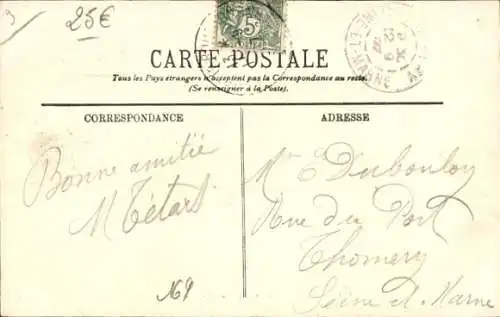 25€
5
CARTE POSTALE
Tous les Pays étrangers n'acceptent pas la Correspondance au recto.
(Se renseigner à la Poste).
CORRESPONDANCE
Bonne amitié
M Tétart
ADRESSE
Mr E Dubouloy
Rue du Port
Thomery
Seine et Marne